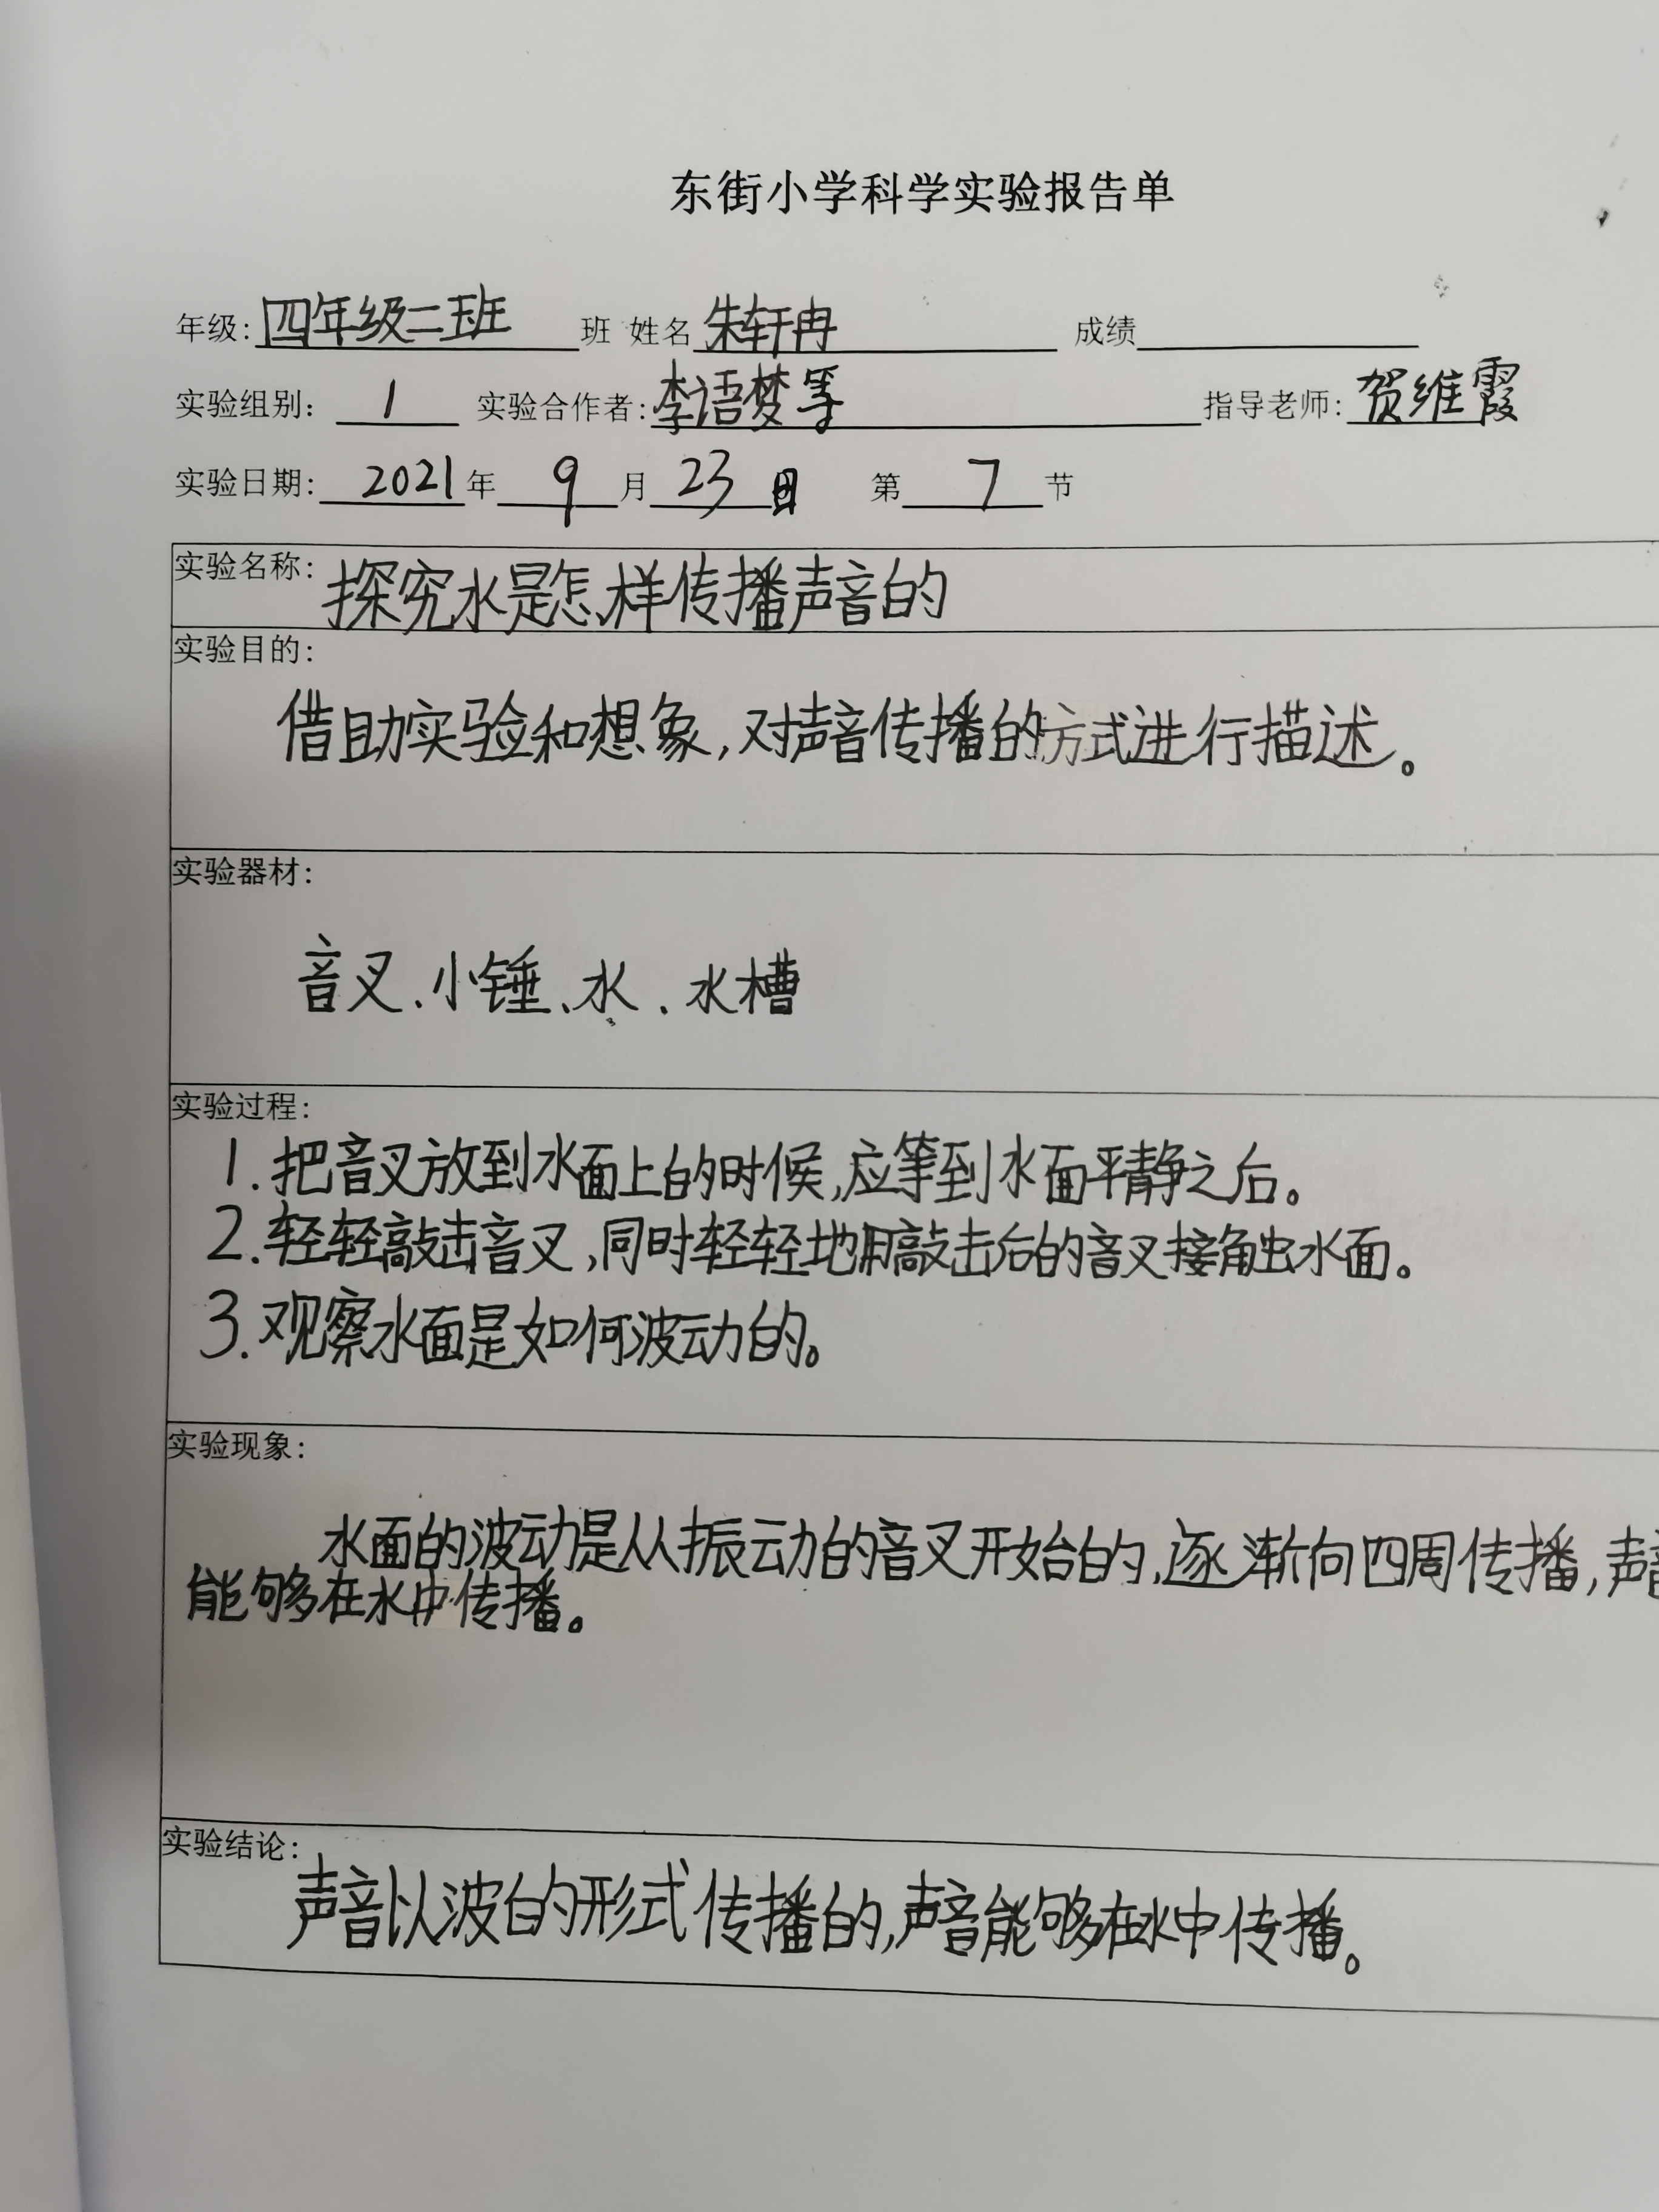 东街小学科学实验报告单
年级:四年级二班 班 姓名 朱轩冉 成绩
实验组别: 1 实验合作者:李语梦等 指导老师:贺维霞
实验日期: 2021 年 9 月 23 日 第 7 节
实验名称: 探究水是怎样传播声音的
实验目的:
借助实验和想象,对声音传播的方式进行描述。
实验器材:
音叉、小锤、水、水槽
实验过程:
1.把音叉放到水面上的时候,应等到水面平静之后。
2.轻轻敲击音叉,同时轻轻地用敲击后的音叉接触水面。
3.观察水面是如何波动的。
实验现象:
水面的波动是从振动的音叉开始的,逐渐向四周传播,声音
能够在水中传播。
实验结论:
声音以波的形式传播的,声音能够在水中传播。